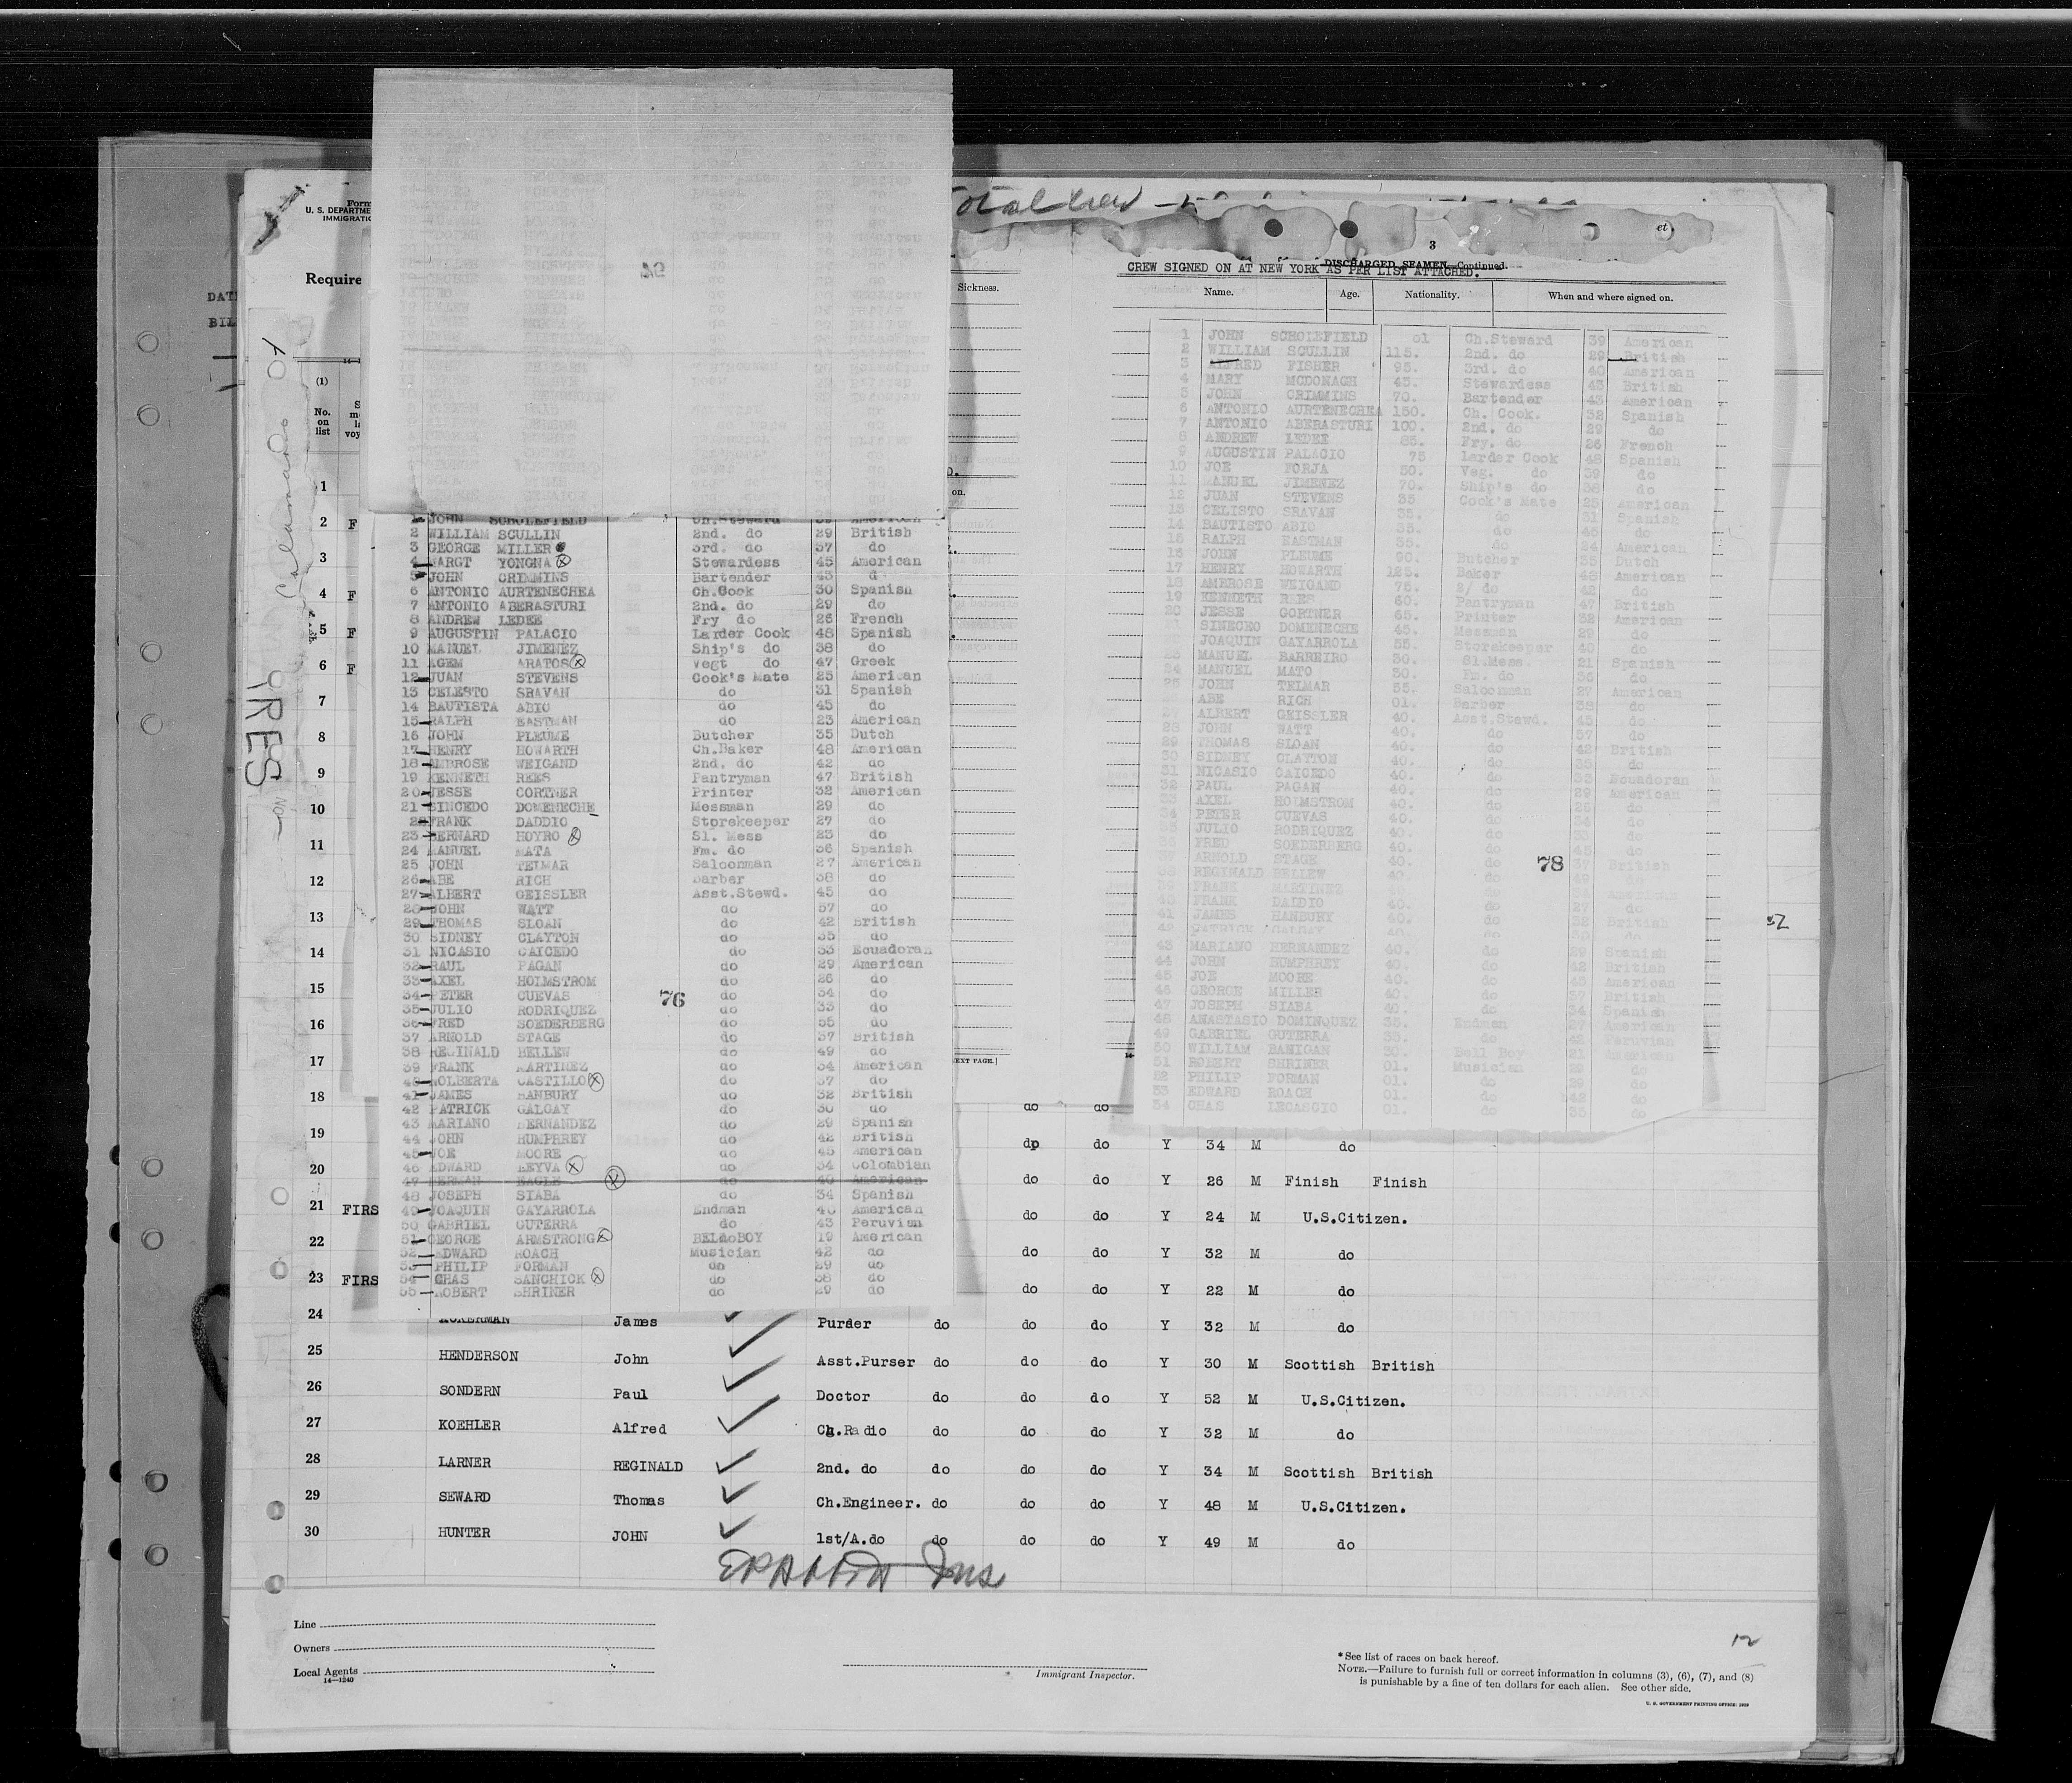 Form
U. S. DEPARTM
IMMIGRATIO
Require
DAT
BIL
(1)
No.
on
list
RES
Total Crew
3
et
DISCHARGED SEAMEN—Continued.
CREW SIGNED ON AT NEW YORK AS PER LIST ATTACHED.
Sickness.
Name. Age. Nationality. When and where signed on.
1 JOHN SCHOLEFIELD 01 Ch.Steward 39 American
2 WILLIAM SCULLIN 115. 2nd. do 29 British
3 ALFRED FISHER 95. 3rd. do 40 American
4 MARY MCDONAGH 45. Stewardess 43 British
5 JOHN CRIMMINS 70. Bartender 43 American
6 ANTONIO AURTENECHEA 150. Ch. Cook. 32 Spanish
7 ANTONIO ABERASTURI 100. 2nd. do 29 do
8 ANDREW LEDEE 85. Fry. do 26 French
9 AUGUSTIN PALACIO 75 Larder Cook 48 Spanish
10 JOE FORJA 50. Veg. do 39 do
11 MANUEL JIMENEZ 70. Ship's do 38 do
12 JUAN STEVENS 35. Cook's Mate 25 American
13 CELISTO SRAVAN 35. do 31 Spanish
14 BAUTISTO ABIO 35. do 45 do
15 RALPH EASTMAN 35. do 24 American
16 JOHN PLEUME 90. Butcher 35 Dutch
17 HENRY HOWARTH 125. Baker 48 American
18 AMBROSE WEIGAND 75. 2/ do 42 do
19 KENNETH REES 60. Pantryman 47 British
20 JESSE CORTNER 65. Printer 32 American
SINECEO DOMENECHE 45. Messman 29 do
JOAQUIN GAYARROLA 55. Storekeeper 40 do
23 MANUEL BARREIRO 30. Sl.Mess. 21 Spanish
24 MANUEL MATO 30. Fm. do 36 do
25 JOHN TELMAR 55. Saloonman 27 American
ABE RICH 01. Barber 38 do
27 ALBERT GEISSLER 40. Asst.Stewd. 45 do
28 JOHN WATT 40. do 57 do
29 THOMAS SLOAN 40. do 42 British
30 SIDNEY CLAYTON 40. do 35 do
31 NICASIO CAICEDO 40. do 33 Ecuadoran
32 PAUL PAGAN 40. do 29 American
33 AXEL HOLMSTROM 40. do 26 do
34 PETER CUEVAS 40. do 34 do
35 JULIO RODRIQUEZ 40. do 33 do
FRED SOEDERBERG 40. do 45 do
ARNOLD STAGE 40. do 37 British
38 REGINALD BELLEW 40. do 49 do
FRANK MARTINEZ 40. do 34 American
40 FRANK DADDIO 40. do 27 do
41 JAMES HANBURY 40. do 32 British
42 PATRICK GALGAY 40. do 30 do
43 MARIANO HERNANDEZ 40. do 29 Spanish
44 JOHN HUMPHREY 40. do 42 British
45 JOE MOORE 40. do 45 American
46 GEORGE MILLER 40. do 37 British
47 JOSEPH SIABA 40. do 34 Spanish
48 ANASTASIO DOMINQUEZ 35. Endman American
49 GABRIEL GUTERRA 35. do 42 Peruvian
50 WILLIAM BANIGAN 30. Bell Boy 21 American
51 ROBERT SHRINER 01. Musician 29 do
52 PHILIP FORMAN 01. do 29 do
53 EDWARD ROACH 01. do 42 do
54 CHAS LECASCIO 01. do 35 do
78
1 JOHN SCHOLEFIELD Ch.Steward 39 American
2 WILLIAM SCULLIN 2nd. do 29 British
3 GEORGE MILLER 3rd. do 37 do
4 MARGT YONGNA Stewardess 45 American
5 JOHN CRIMMINS Bartender 43 d
6 ANTONIO AURTENECHEA Ch.Cook 30 Spanish
7 ANTONIO ABERASTURI 2nd. do 29 do
8 ANDREW LEDEE Fry do 26 French
9 AUGUSTIN PALACIO Larder Cook 48 Spanish
10 MANUEL JIMENEZ Ship's do 38 do
11 AGEM ARATOS Vegt do 47 Greek
12 JUAN STEVENS Cook's Mate 25 American
13 CELESTO SRAVAN do 31 Spanish
14 BAUTISTA ABIO do 45 do
15 RALPH EASTMAN do 23 American
16 JOHN PLEUME Butcher 35 Dutch
17 HENRY HOWARTH Ch.Baker 48 American
18 AMBROSE WEIGAND 2nd. do 42 do
19 KENNETH REES Pantryman 47 British
20 JESSE CORTNER Printer 32 American
21 SINCEDO DOMENECHE Messman 29 do
22 FRANK DADDIO Storekeeper 27 do
23 BERNARD HOYRO Sl. Mess 23 do
24 MANUEL MATA Fm. do 36 Spanish
25 JOHN TELMAR Saloonman 27 American
26 ABE RICH Barber 38 do
27 ALBERT GEISSLER Asst.Stewd. 45 do
28 JOHN WATT do 57 do
29 THOMAS SLOAN do 42 British
30 SIDNEY CLAYTON do 35 do
31 NICASIO CAICEDO do 33 Ecuadoran
32 RAUL PAGAN do 29 American
33 AXEL HOLMSTROM do 26 do
34 PETER CUEVAS do 34 do
35 JULIO RODRIQUEZ do 33 do
36 FRED SOEDERBERG do 55 do
37 ARNOLD STAGE do 37 British
38 REGINALD BELLEW do 49 do
39 FRANK MARTINEZ do 34 American
40 WOLBERTA CASTILLO do 37 do
41 JAMES HANBURY do 32 British
42 PATRICK GALGAY do 30 do
43 MARIANO HERNANDEZ do 29 Spanish
44 JOHN HUMPHREY do 42 British
45 JOE MOORE do 45 American
46 EDWARD LEYVA do 34 Colombian
47 HERMAN EAGLE do 40 American
48 JOSEPH SIABA do 34 Spanish
49 JOAQUIN GAYARROLA Endman 40 American
50 GABRIEL GUTERRA do 43 Peruvian
51 GEORGE ARMSTRONG BELLBOY 19 American
52 EDWARD ROACH Musician 42 do
53 PHILIP FORMAN do 29 do
54 CHAS SANCHICK do 38 do
55 ROBERT SHRINER do 29 do
76
EXT PAGE.]
1
2 F
3
4 F
5 F
6 F
7
8
9
10
11
12
13
14
15
16
17
18 do do
19 do do Y 34 M do
20 do do Y 26 M Finish Finish
21 FIRS do do Y 24 M U.S.Citizen.
22 do do Y 32 M do
23 FIRS do do Y 22 M do
24 ACKERMAN James Purser do do do Y 32 M do
25 HENDERSON John Asst.Purser do do do Y 30 M Scottish British
26 SONDERN Paul Doctor do do do Y 52 M U.S.Citizen.
27 KOEHLER Alfred Ch.Radio do do do Y 32 M do
28 LARNER REGINALD 2nd. do do do do Y 34 M Scottish British
29 SEWARD Thomas Ch.Engineer. do do do Y 48 M U.S.Citizen.
30 HUNTER JOHN 1st/A.do do do do Y 49 M do
Line
Owners
Local Agents
14—1240
Immigrant Inspector.
12
*See list of races on back hereof.
NOTE.—Failure to furnish full or correct information in columns (3), (6), (7), and (8)
is punishable by a fine of ten dollars for each alien. See other side.
U. S. GOVERNMENT PRINTING OFFICE: 1929